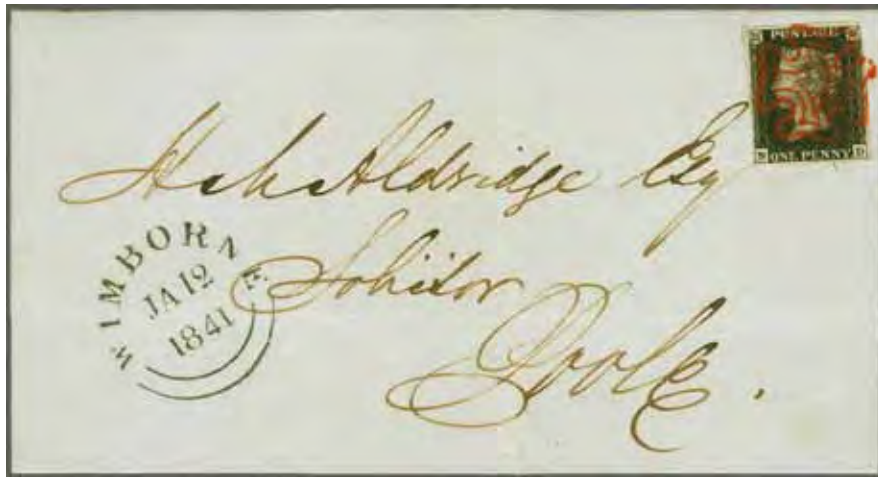 POSTAGE
ONE PENNY D
Aldridge Esq
Solicitor
Poole.
WIMBORNE
JA 12
1841